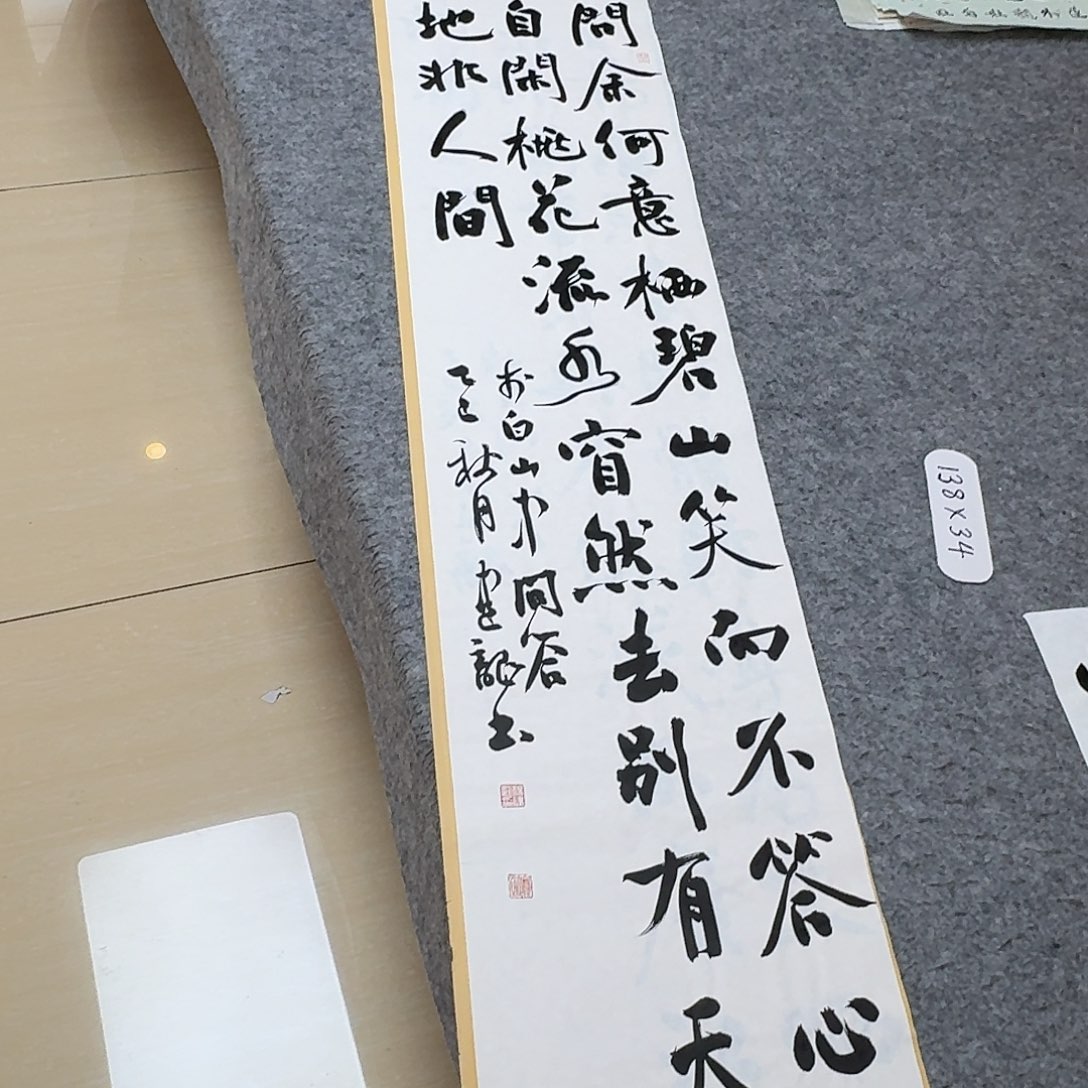 問余何意栖碧山笑而不答心
自閑桃花流水窅然去別有天
地非人間
李白山中問答
乙巳秋月建龍书
138×34